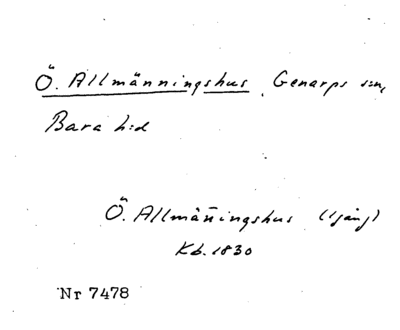 Ö. Allmänningshus, Genarps sn,
Bara h:d
Ö. Allmän̄ingshus (1 gång)
Kb. 1830
Nr 7478